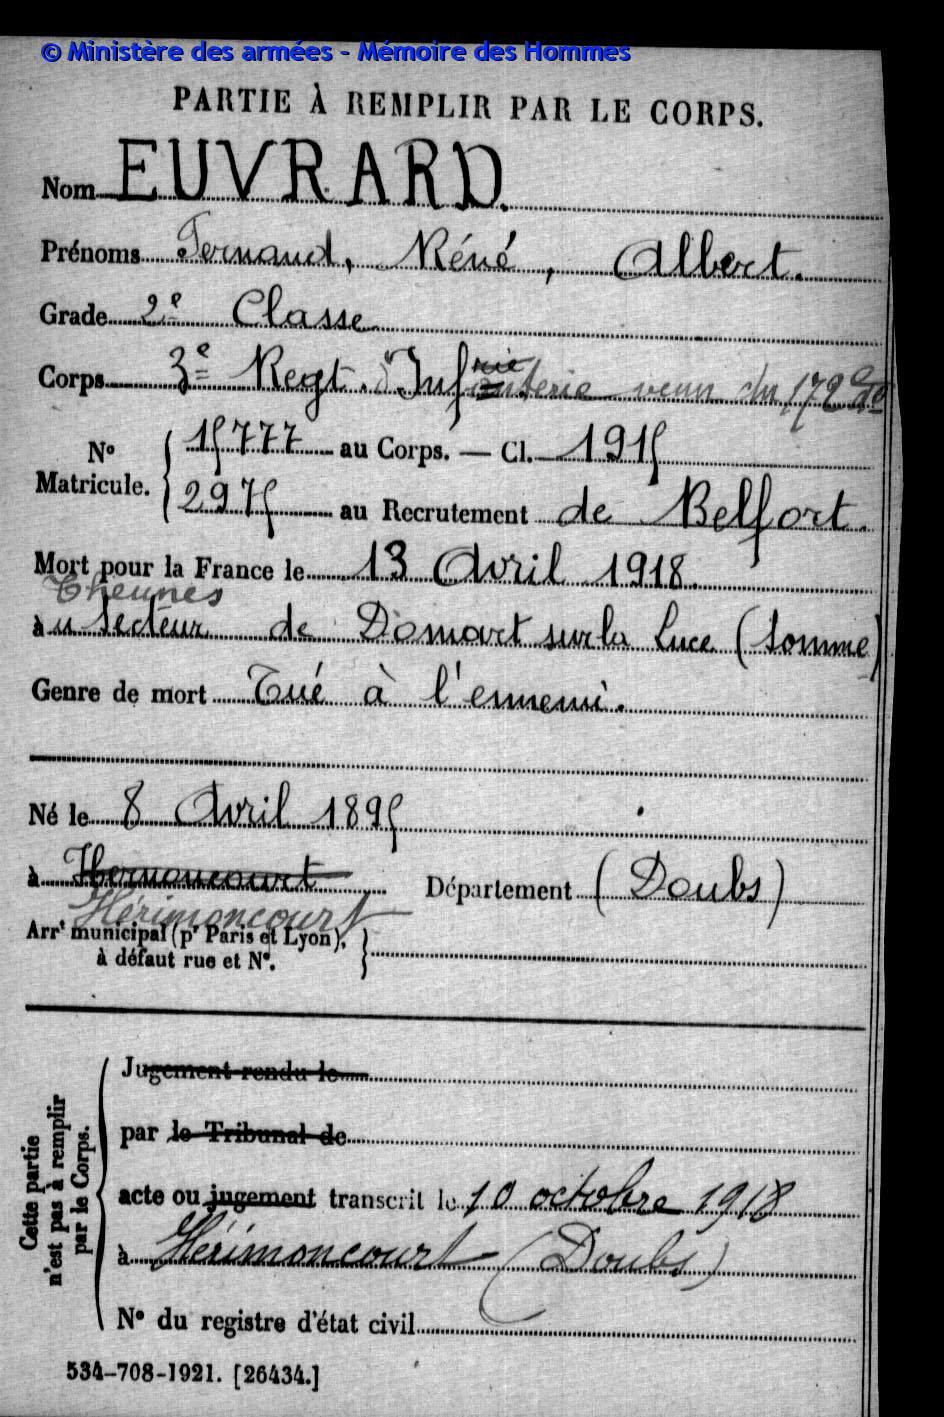 © Ministère des armées - Mémoire des Hommes
PARTIE À REMPLIR PAR LE CORPS.
Nom EUVRARD.
Prénoms Fernand, Réné, Albert.
Grade 2e Classe
Corps 3e Regt. d'Infanterie venu du 172e
No Matricule. { 15777 au Corps. — Cl. 1915
2975 au Recrutement de Belfort.
Mort pour la France le 13 Avril 1918.
Thennes
à u Secteur de Domart sur la Luce (Somme)
Genre de mort Tué à l'ennemi.
Né le 8 Avril 1895
à Hernoncourt Département (Doubs)
Hérimoncourt
Arrt municipal (pr Paris et Lyon),
à défaut rue et No.
Cette partie
n'est pas à remplir
par le Corps.
Jugement rendu le
par le Tribunal de
acte ou jugement transcrit le 10 octobre 1918
à Hérimoncourt (Doubs)
No du registre d'état civil
534-708-1921. [26434.]